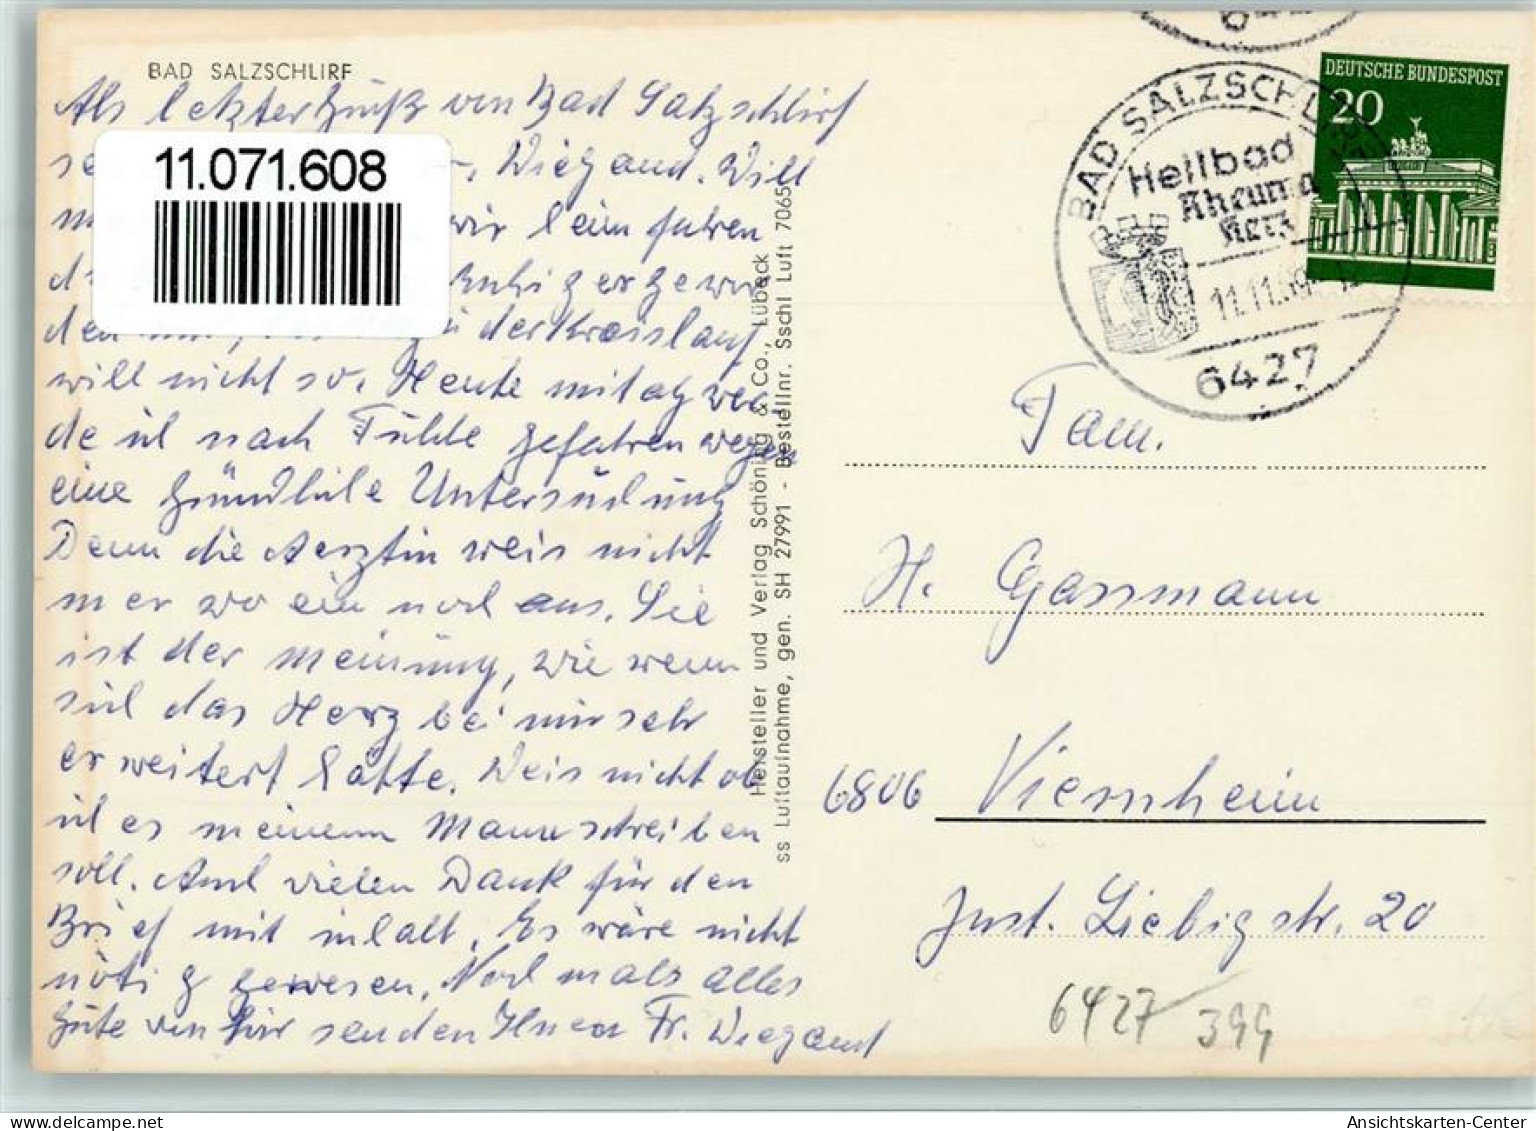 BAD SALZSCHLIRF
Als letzter Gruß von Bad Salzschlirf
Wiegand. Will
wir beim fahren
ruhiger gewor
den der Kreislauf
will nicht so. Heute mitag wer
de ich nach Fulda gefahren wegen
eine gründliche Untersuchung
Denn die Aerztin weis nicht
mer wo ein noch aus. Sie
ist der meinung, wie wenn
sich das Herz bei mir sehr
erweitert hätte. Weis nicht ob
ich es meinem Mann schreiben
soll. Auch vielen Dank für den
Brief mit inhalt. Es wäre nicht
nötig gewesen. Nochmals alles
Gute von hir senden Ihnen Fr. Wiegand
11.071.608
Hersteller und Verlag Schöning & Co., Lübeck
ss Luftaufnahme, gen. SH 27991 - Bestellnr. Sschl Luft 7065
BAD SALZSCHLIRF
Heilbad
Rheuma
Herz
11.11.69
6427
642
DEUTSCHE BUNDESPOST
20
Fam.
H. Gassmann
6806 Viernheim
Just. Liebigstr. 20
6427/399
Ansichtskarten-Center